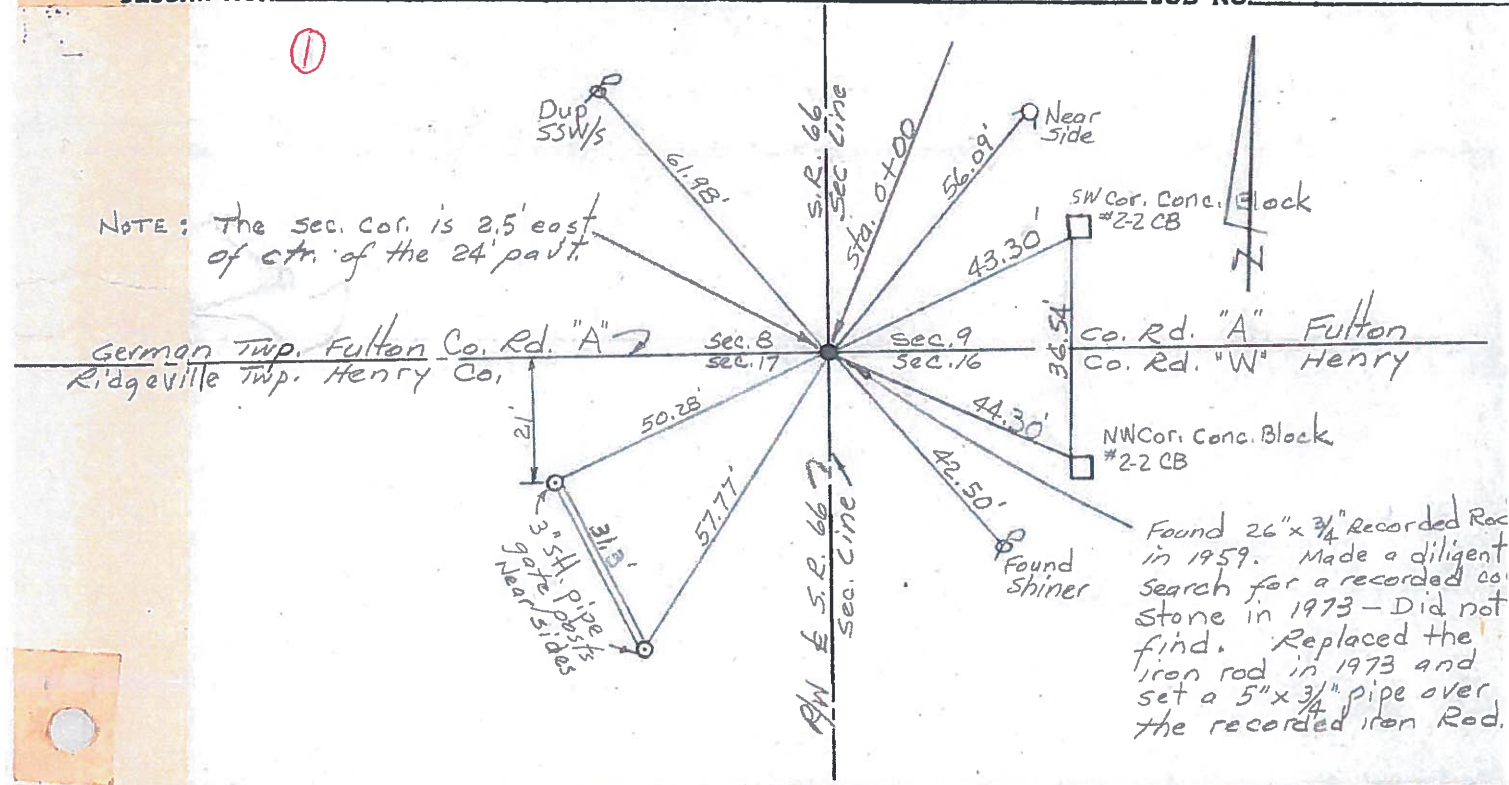 JOB NO.
1
Dup
SSW/S
61.98'
S.R. 66
Sec. Line
Sta. 0+00
56.09'
Near
Side
SW Cor. Conc. Block
#2-2 CB
43.30'
N
NOTE: The sec. cor. is 2.5' east
of ctr. of the 24' pavt.
German Twp. Fulton Co. Rd. "A"
Ridgeville Twp. Henry Co.
sec. 8
sec. 17
sec. 9
sec. 16
36.54'
Co. Rd. "A" Fulton
Co. Rd. "W" Henry
21'
50.28'
57.77'
31.3'
3" stl. pipe
gate posts
Near sides
R/W ℄ S.R. 66
Sec. Line
44.30'
42.50'
NW Cor. Conc. Block
#2-2 CB
Found
Shiner
Found 26" x 3/4" Recorded Rod
in 1959. Made a diligent
search for a recorded co.
stone in 1973 - Did not
find. Replaced the
iron rod in 1973 and
set a 5" x 3/4" pipe over
the recorded iron Rod.